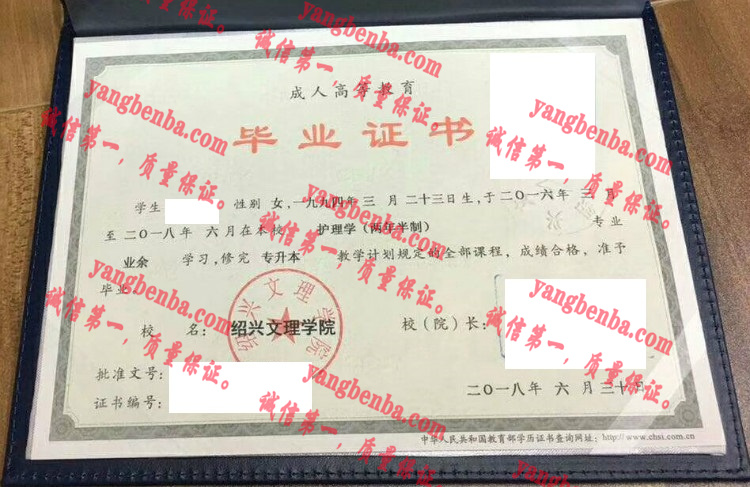 成人高等教育
毕业证书
学生 性别 女,一九九四年 三 月 二十三日生,于二〇一六年 三 月
至 二〇一八年 六月在本校 护理学(两年半制) 专业
业余 学习,修完 专升本 教学计划规定的全部课程,成绩合格,准予
毕业。
校 名: 绍兴文理学院 校(院)长:
绍兴文理学院
批准文号:
证书编号:
二〇一八年 六 月 三十日
中华人民共和国教育部学历证书查询网址:http://www.chsi.com.cn
yangbenba.com
诚信第一,质量保证。
yangbenba.com
诚信第一,质量保证。
yangbenba.com
诚信第一,质量保证。
yangbenba.com
诚信第一,质量保证。
yangbenba.com
诚信第一,质量保证。
yangbenba.com
诚信第一,质量保证。
yangbenba.com
诚信第一,质量保证。
yangbenba.com
诚信第一,质量保证。
yangbenba.com
诚信第一,质量保证。